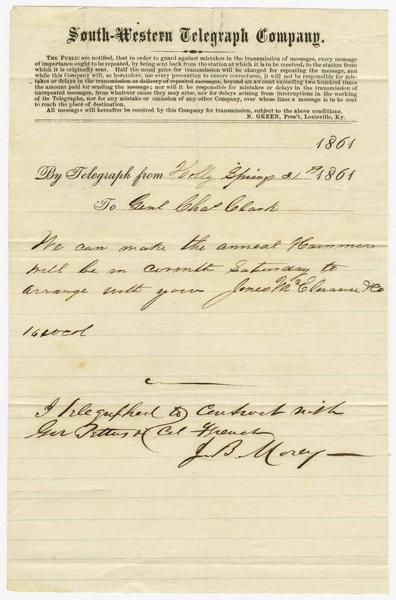 South-Western Telegraph Company.
THE PUBLIC are notified, that in order to guard against mistakes in the transmission of messages, every message
of importance ought to be repeated, by being sent back from the station at which it is to be received, to the station from
which it is originally sent. Half the usual price for transmission will be charged for repeating the message, and
while this Company will, as heretofore, use every precaution to ensure correctness, it will not be responsible for mis-
takes or delays in the transmission or delivery of repeated messages, beyond an amount exceeding two hundred times
the amount paid for sending the message; nor will it be responsible for mistakes or delays in the transmission of
unrepeated messages, from whatever cause they may arise, nor for delays arising from interruptions in the working
of its Telegraphs, nor for any mistake or omission of any other Company, over whose lines a message is to be sent
to reach the place of destination.
All messages will hereafter be received by this Company for transmission, subject to the above conditions.
N. GREEN, Pres't, Louisville, Ky.
1861
By Telegraph from Holly Springs 21st 1861
To Genl Chas Clark
We can make the anneal Hammers
will be in corinth Saturday to
arrange with you Jones McElwaine & Co
col
I telegraphed to contract with
Gov Pettus or Col French
J. B. Morey